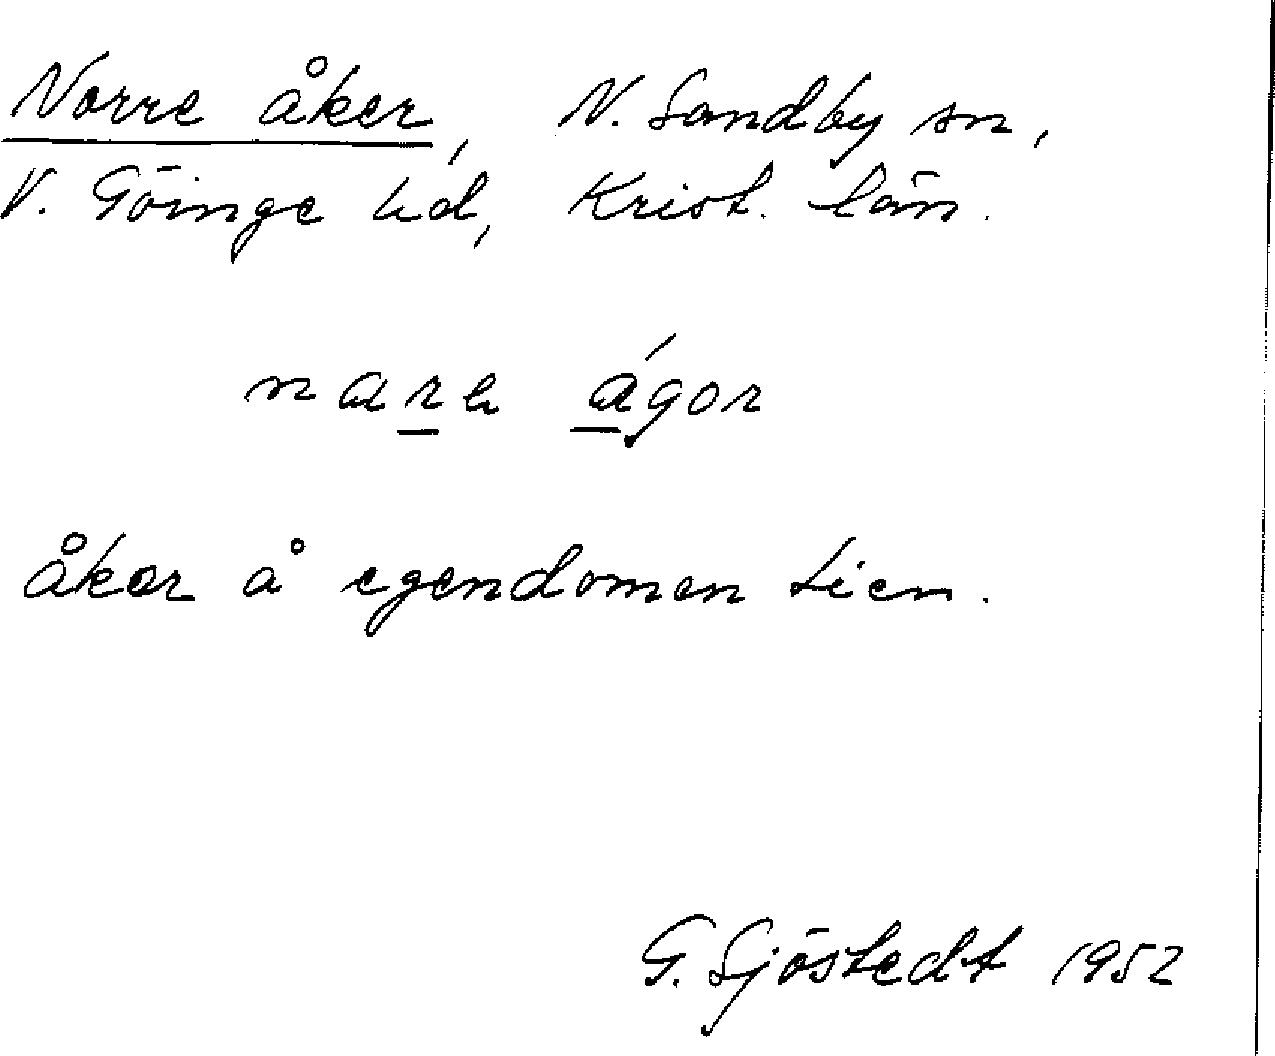 Norre åker, N. Sandby sn,
V. Göinge hd, Krist. län.
åker å egendomen tien.
G. Sjöstedt 1952